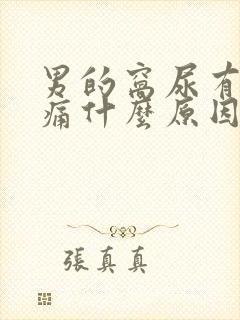 男的窩尿有
痛什麼原因
張真真